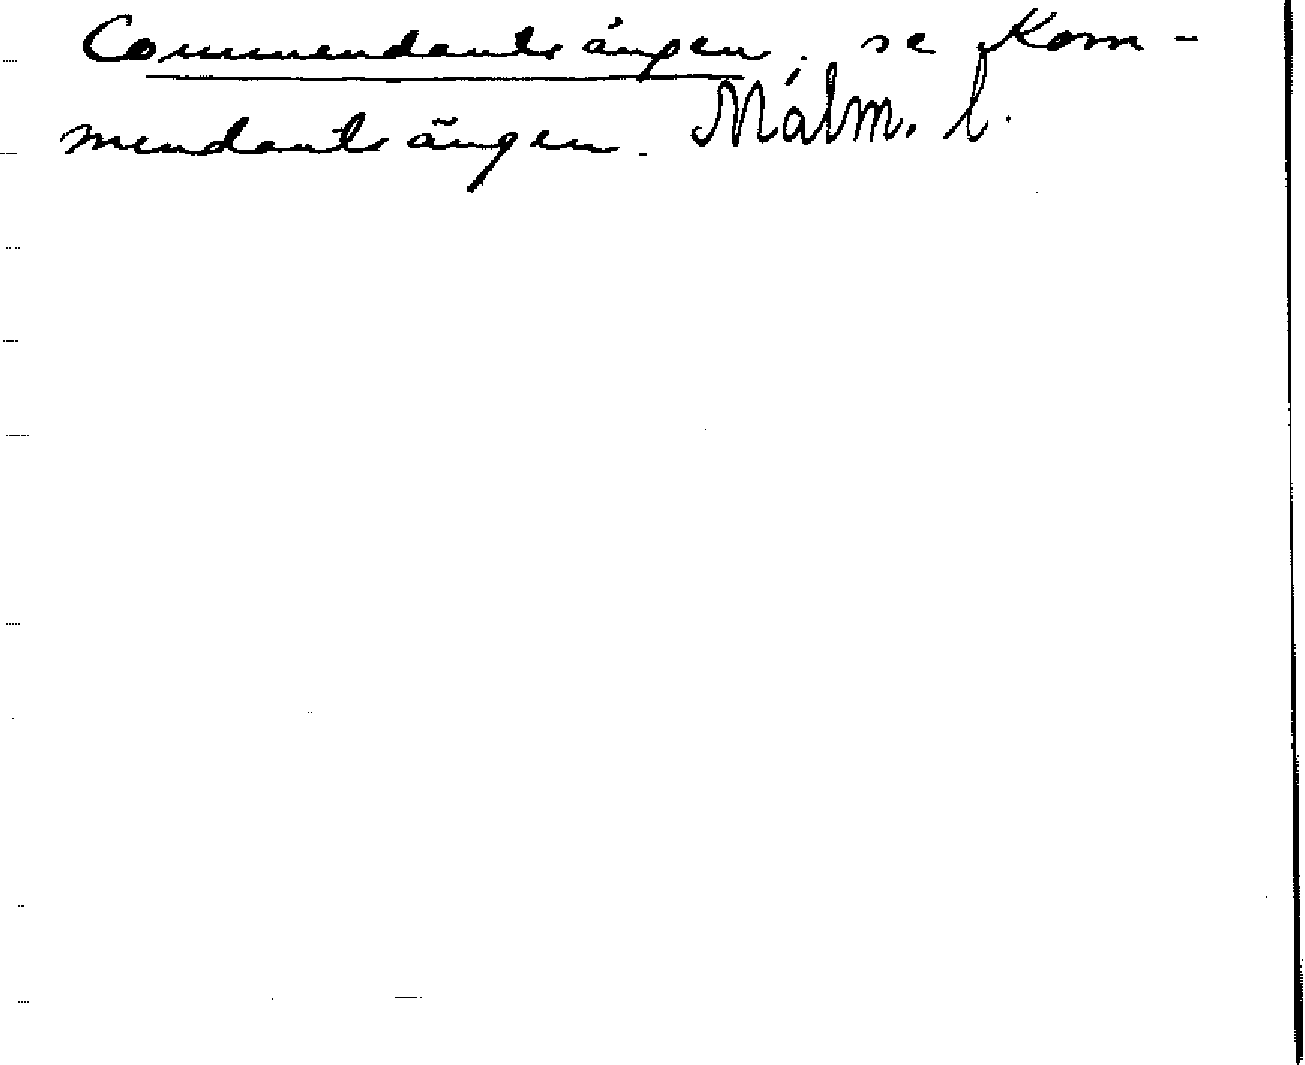 Commendantsängen. se Kom-
mendantsängen. Målm. l.